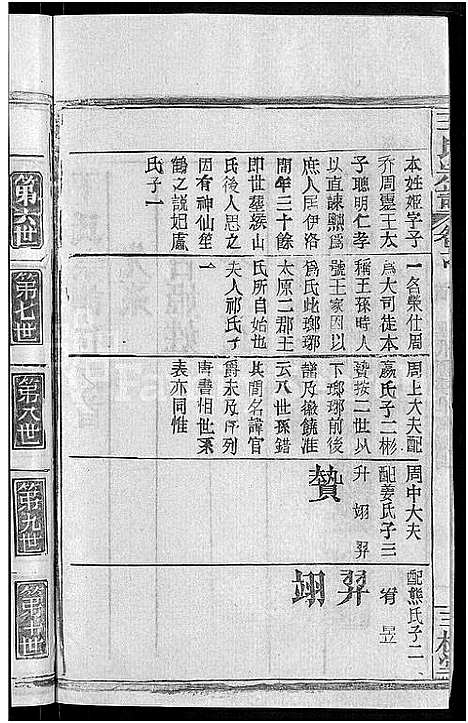 本姓姬字子
喬周靈王太
子聰明仁孝
以直諫黜爲
庶人居伊洛
間年三十餘
即世葬緱山
氏後人思之
因有神仙笙
鶴之說妃
氏子一
一名榮仕周
爲大司徒本
稱王孫時人
號王家因以
爲氏此瑯琊
太原二郡王
氏所自始也
夫人祁氏子
一
周上大夫配
嬴氏子二彬
贊按二世以
下瑯琊前後
譜及徽饒准
云八世孫錯
其間名諱官
爵未及序列
唐書相世系
表亦同惟
周中大夫
配姜氏子三
升 翊 羿
贊
配熊氏子二
宥 昱
羿
翊
第六世
第七世
第八世
第九世
第十世
三槐堂